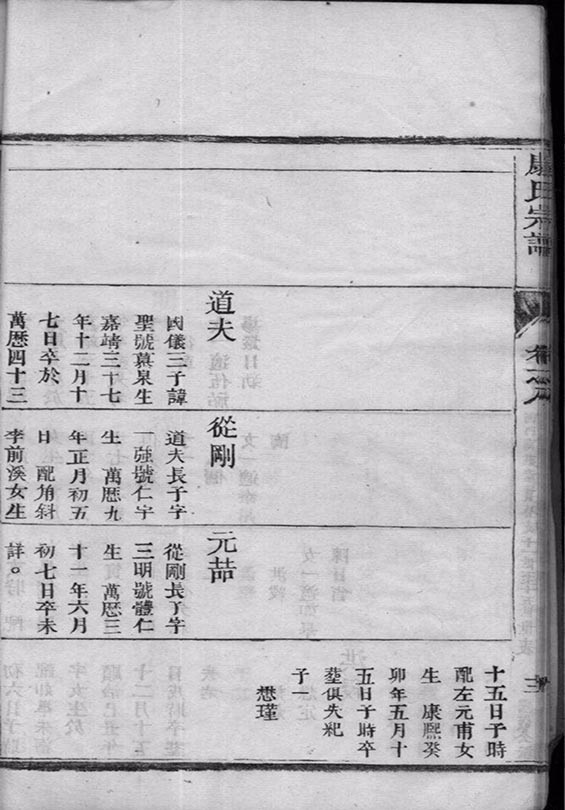 康氏宗譜
卷之八
三
道夫
國儀三子諱
聖號真泉生
嘉靖三十七
年十二月十
七日卒於
萬歷四十三
從剛
道夫長子字
一強號仁宇
生 萬歷九
年正月初五
日 配角斜
李前溪女生
元喆
從剛長子字
三明號體仁
生 萬歷三
十一年六月
初七日卒未
詳。
十五日子時
配左元甫女
生 康熙癸
卯年五月十
五日子時卒
塟俱失紀
子一
懋瑾